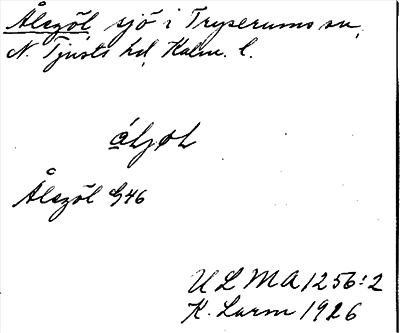 Ålsgöl, sjö i Tryserums sn,
N. Tjusts hd, Kalm. l.
Ålsgöl G46
ULMA 1256:2
K. Larm 1926